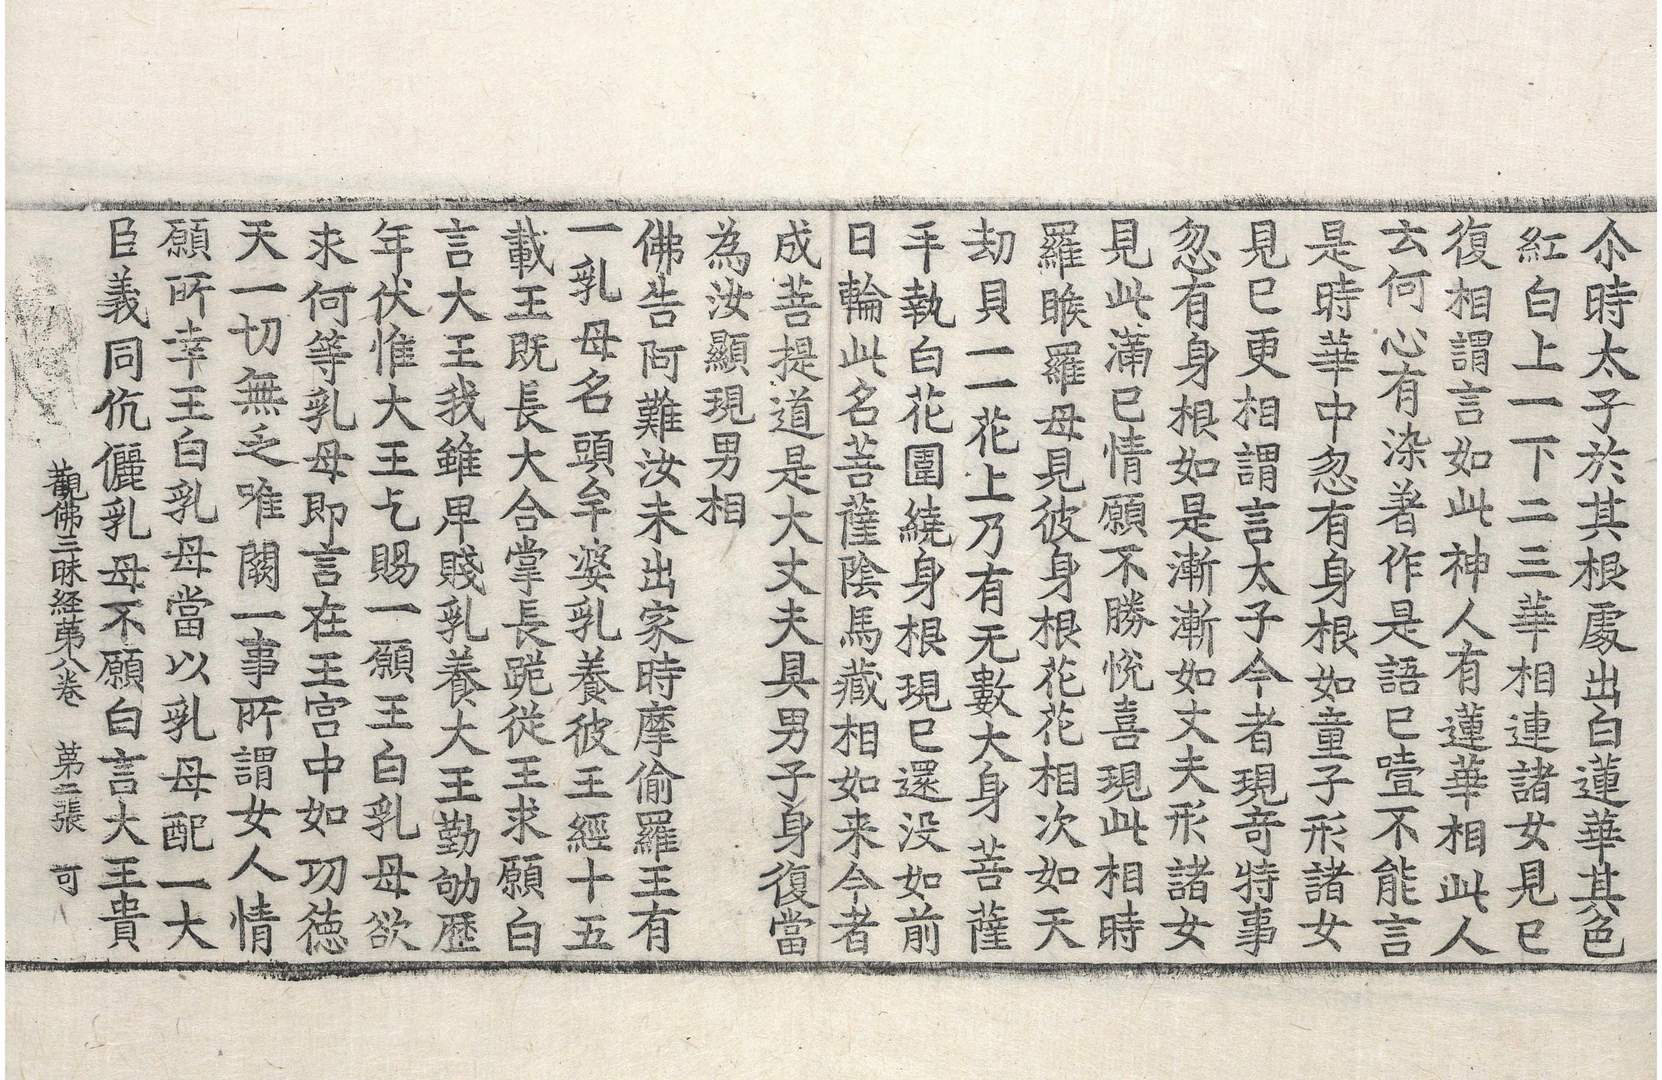 尒時太子於其根處出白蓮華其色
紅白上一下二三華相連諸女見已
復相謂言如此神人有蓮華相此人
云何心有染著作是語已噎不能言
是時華中忽有身根如童子形諸女
見已更相謂言太子今者現竒特事
忽有身根如是漸漸如丈夫形諸女
見此滿已情願不勝恱喜現此相時
羅睺羅母見彼身根花花相次如天
劫貝一一花上乃有无數大身菩薩
手執白花圍繞身根現已還没如前
日輪此名菩薩隂馬藏相如来今者
成菩提道是大丈夫具男子身復當
為汝顯現男相
佛告阿難汝未出家時摩偷羅王有
一乳母名頭牟婆乳養彼王經十五
載王既長大合掌長跪從王求願白
言大王我雖卑賤乳養大王勤劬歷
年伏惟大王乞賜一願王白乳母欲
求何等乳母即言在王宫中如功徳
天一切無乏唯闕一事所謂女人情
願所幸王白乳母當以乳母配一大
臣義同伉儷乳母不願白言大王貴
觀佛三昧経苐八卷 苐二張 可